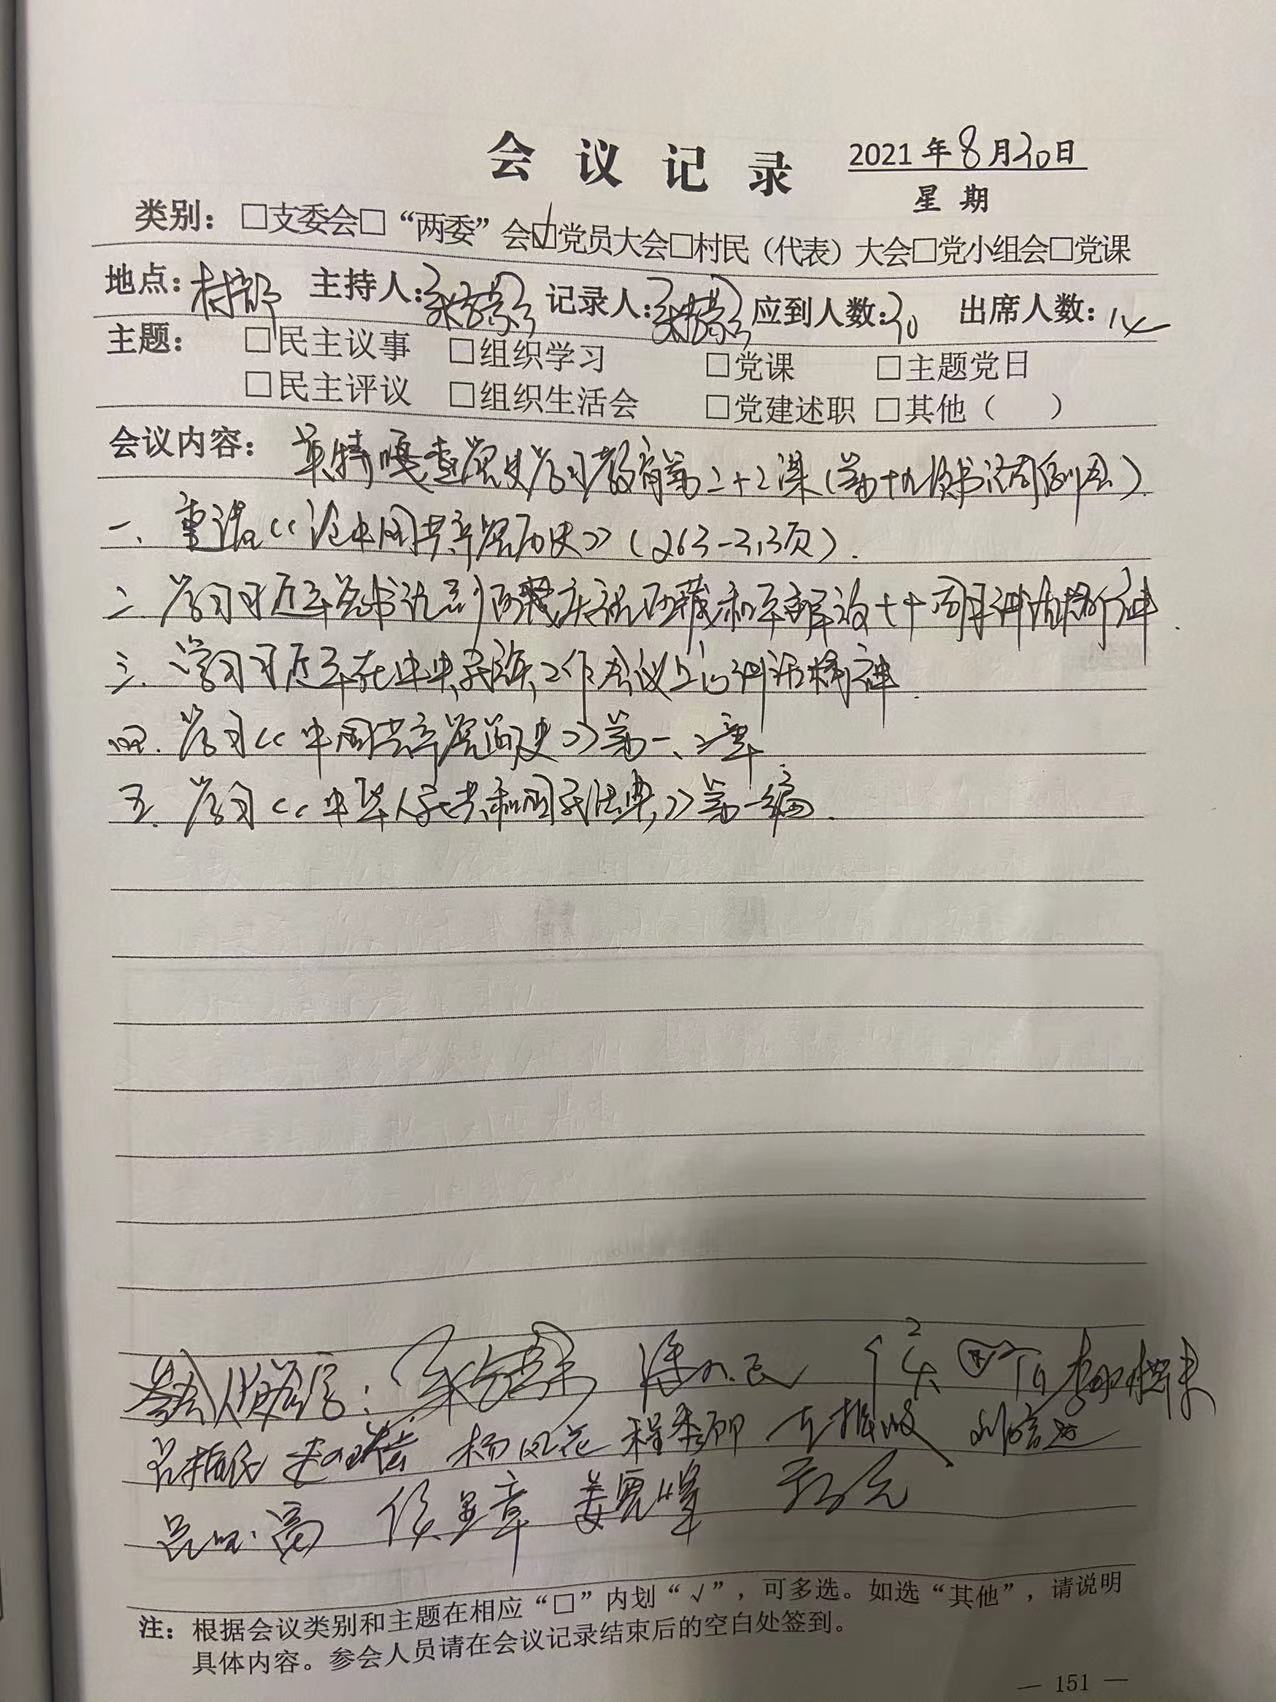 会议记录 2021年8月30日
星期
类别：□支委会□“两委”会☑党员大会□村民（代表）大会□党小组会□党课
地点：村部 主持人： 记录人： 应到人数：30 出席人数：14
主题： □民主议事 □组织学习 □党课 □主题党日
□民主评议 □组织生活会 □党建述职 □其他（ ）
会议内容： 特嘎查党史学习教育第二十二课（第十九次书记周例会）
一、重读《论中国共产党历史》（263-313页）.
二、学习习近平总书记到西藏庆祝西藏和平解放七十周年讲话精神.
三、学习习近平在中央民族工作会议上的讲话精神.
四、学习《中国共产党简史》第一、二章
五、学习《中华人民共和国民法典》第一编.
参会人员签字：
杨凤花
姜宪峰
注：根据会议类别和主题在相应“□”内划“√”，可多选。如选“其他”，请说明
具体内容。参会人员请在会议记录结束后的空白处签到。
— 151 —